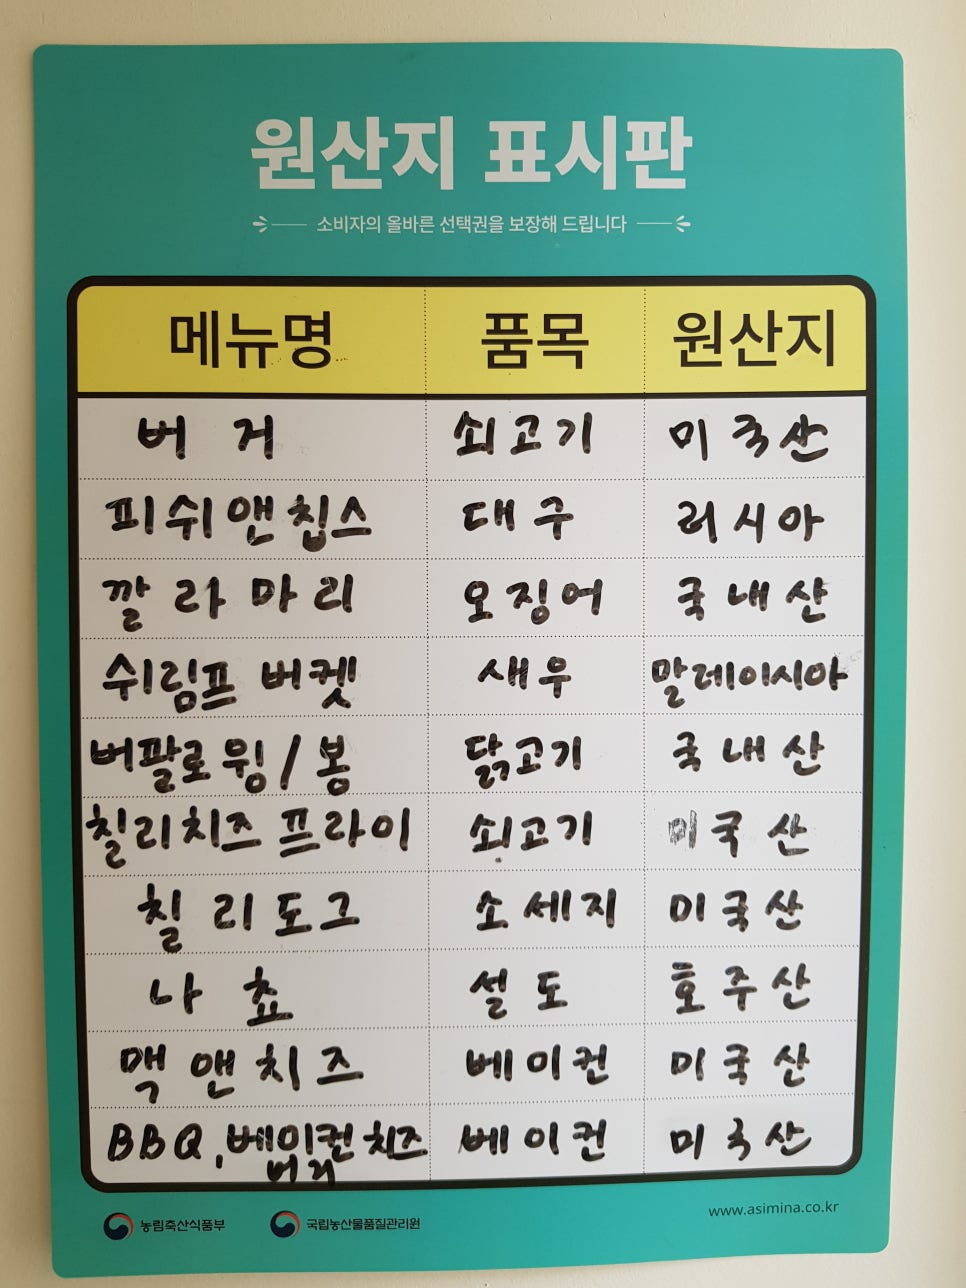 원산지 표시판
소비자의 올바른 선택권을 보장해 드립니다
메뉴명 품목 원산지
버거 쇠고기 미국산
피쉬앤칩스 대구 러시아
깔라마리 오징어 국내산
쉬림프 버켓 새우 말레이시아
버팔로윙/봉 닭고기 국내산
칠리치즈 프라이 쇠고기 미국산
칠리도그 소세지 미국산
나쵸 설도 호주산
맥앤치즈 베이컨 미국산
BBQ, 베이컨치즈 베이컨 미국산
버거
농림축산식품부 국립농산물품질관리원 www.asimina.co.kr